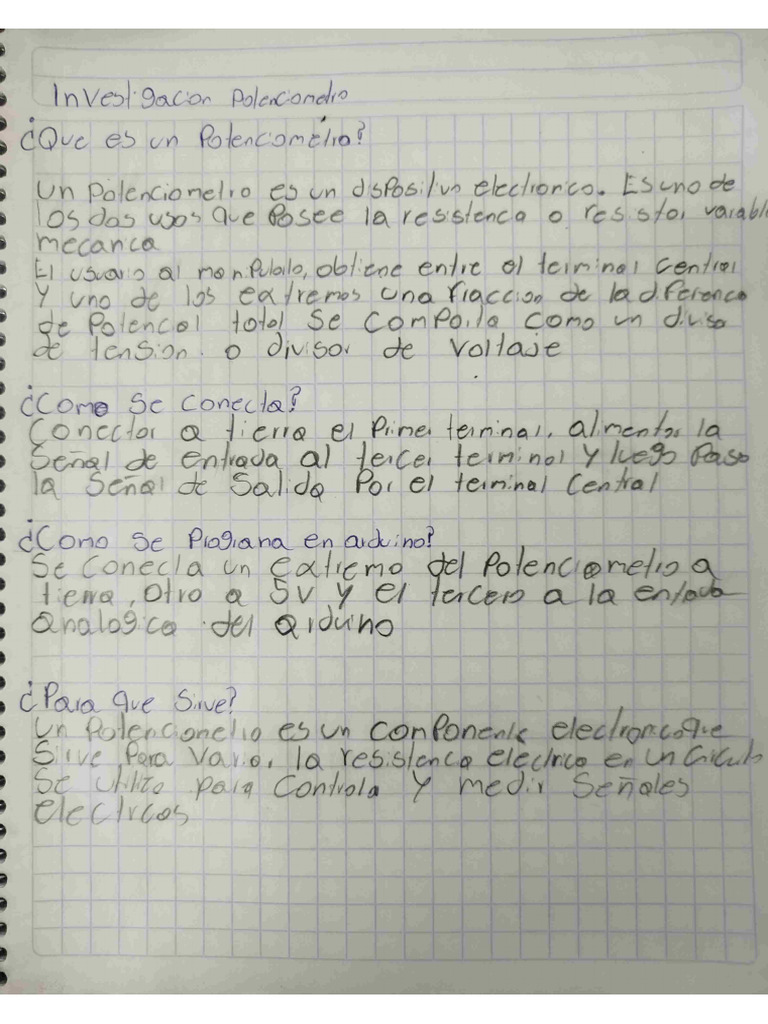 Investigacion Potenciometro
¿Que es un Potenciometro?
Un Potenciometro es un dispositivo electronico. Es uno de
los dos usos que Posee la resistenca o resistor variable
mecanca
El usuario al manipularlo, obtiene entre el terminal central
Y uno de los extremos una fraccion de la diferenca
de Potencial total Se comporta como un diviso
de tension o divisor de voltaje
¿Como se conecta?
Conector a tierra el Primer terminal, alimentar la
Señal de entrada al tercer terminal y luego Paso
la Señal de Salida Por el terminal central
¿Como Se Programa en arduino?
Se conecta un extremo del Potenciometro a
tierra, Otro a 5V y el tercero a la entrada
analogica del arduino
¿Para que Sirve?
Un Potenciometro es un componente electronico que
Sirve Para Variar la resistenca electrica en un Circuito
Se utiliza para Controla y medir Señales
electrcos